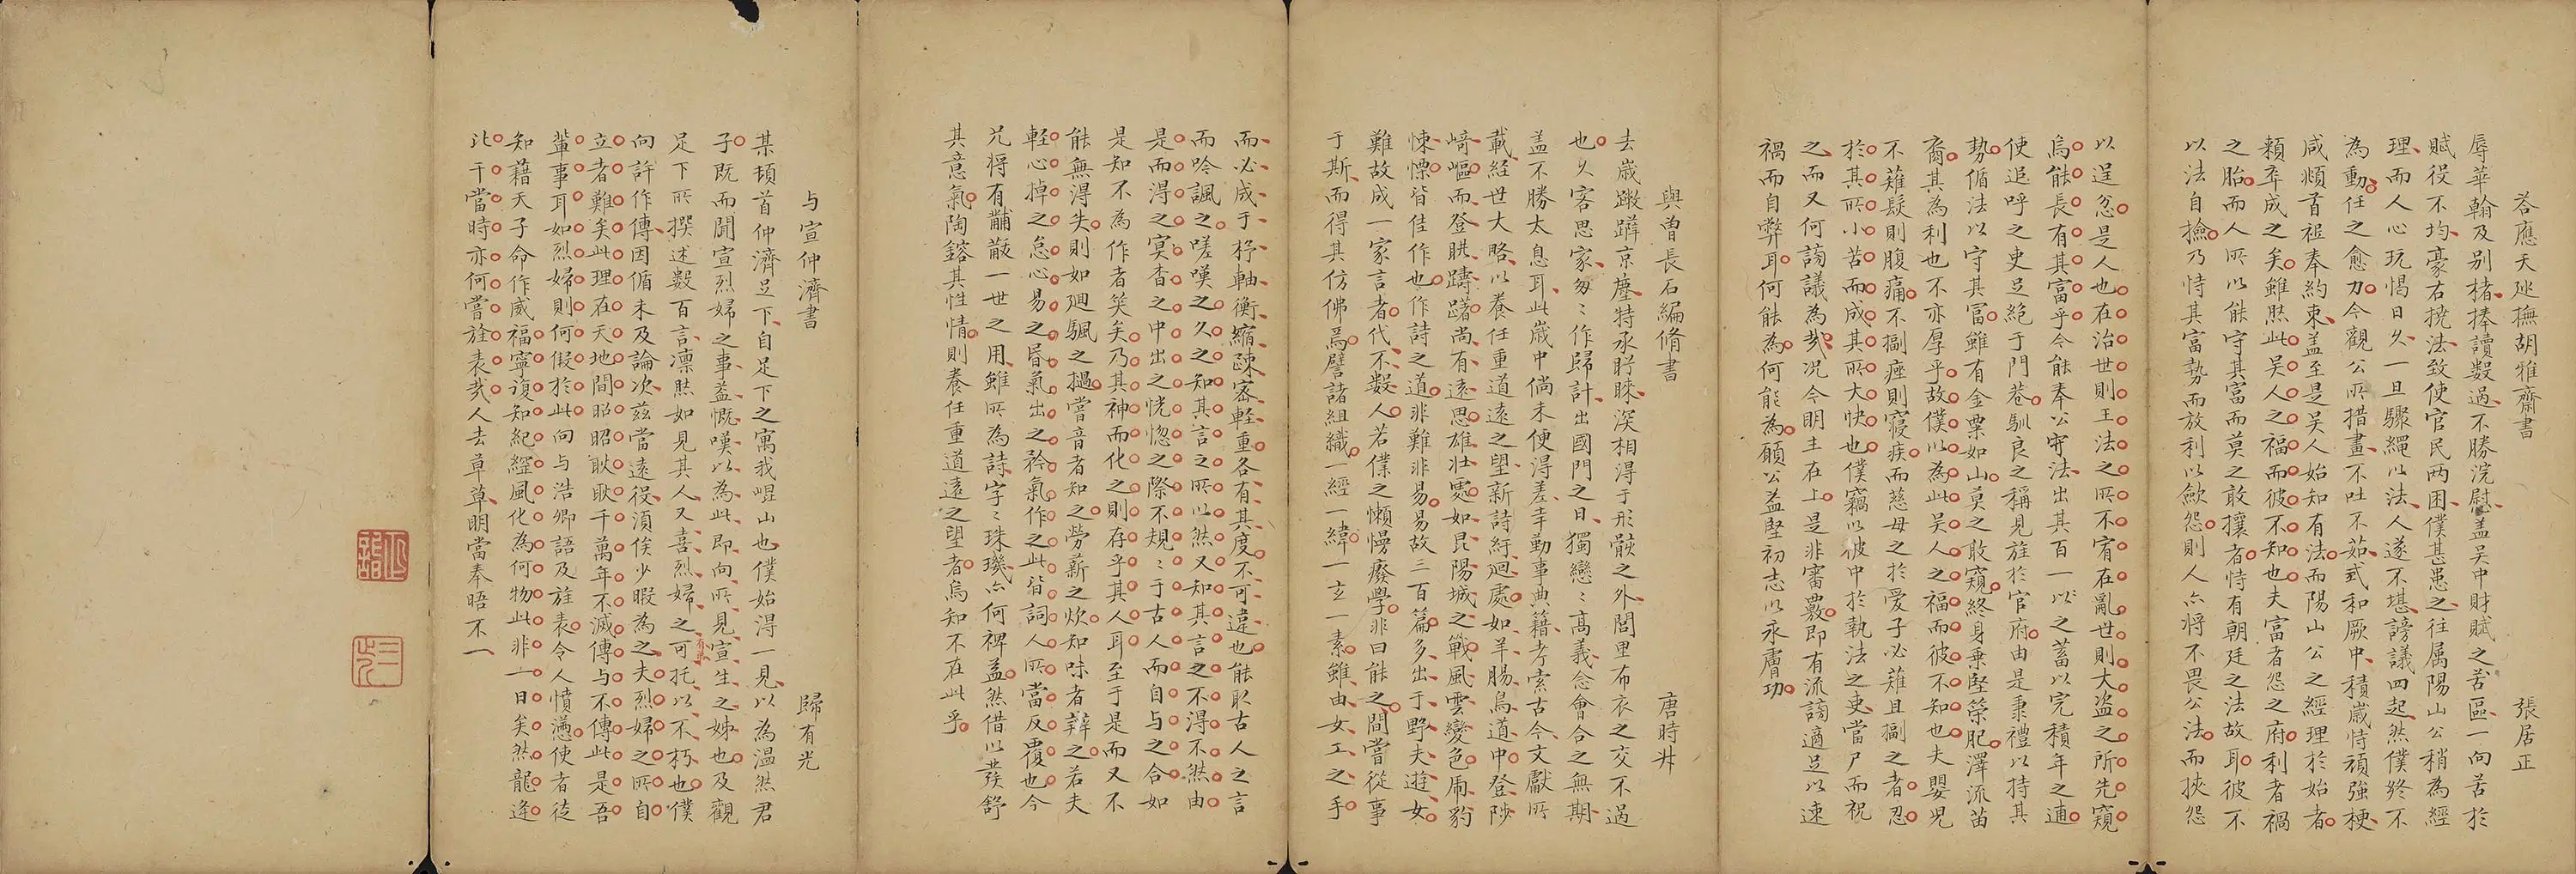 荅應天廵撫胡雅齋書　張居正
辱華翰及别楮捧讀數過不勝浣慰盖吴中財賦之區一向苦於
賦役不均豪右撓法致使官民两困僕甚患之往属陽山公稍為經
理而人心玩愒日久一旦驟繩以法人遂不堪謗議四起然僕終不
為動任之愈力今觀公所措畫不吐不茹式和厥中積歲恃頑強梗
咸頫首袛奉約束盖至是吴人始知有法而陽山公之經理於始者
頼卒成之矣雖然此吴人之福而彼不知也夫富者怨之府利者禍
之胎而人所以能守其富而莫之敢攘者恃有朝廷之法故耳彼不
以法自撿乃恃其富势而放利以歛怨則人亦将不畏公法而挾怨
以逞忿是人也在治世則王法之所不宥在亂世則大盗之所先窺
烏能長有其富乎今能奉公守法出其百一以之蓄以完積年之逋
使追呼之吏足絶于門巷馴良之稱見旌於官府由是秉禮以持其
势循法以守其富雖有金粟如山莫之敢窺終身乗堅榮肥澤流苗
裔其為利也不亦厚乎故僕以為此吴人之福而彼不知也夫嬰児
不薙髮則腹痛不副痤則寝疾而慈母之於爱子必薙且副之者忍
於其所小苦而成其所大快也僕竊以彼中於執法之吏當尸而祝
之而又何謗議為㢤况今明主在上是非審覈即有流謗適足以速
禍而自弊耳何能為何能為願公益堅初志以永膚功
與曽長石編脩書　唐時升
去歳蹾躋京塵特承盻睐深相得于形骸之外閭里布衣之交不過
也久客思家匆〻作歸計出國門之日獨戀〻髙義念會合之無期
盖不勝太息耳此歳中倘未便得差幸勤事典籍考索古今文獻所
載經世大略以養任重道遠之望新詩紆廻處如羊腸鳥道中登陟
﨑嶇而登眺躊躇尚有遠思雄壮處如昆陽城之戰風雲變色虎豹
悚慄皆佳作也作詩之道非難非易易故三百篇多出于野夫逰女
難故成一家言者代不數人若僕之懶慢廢學非曰能之間嘗從事
于斯而得其仿佛焉譬諸組織一經一緯一玄一素雖由女工之手
而必成于杼軸衡縮疎宻軽重各有其度不可違也能取古人之言
而吟諷之嗟嘆之久之知其言之所以然又知其言之不得不然由
是而得之㝠杳之中出之恍惚之際不規〻于古人而自与之合如
是知不為作者笑矣乃其神而化之則存乎其人耳至于是而又不
能無得失則如廻颿之撾嘗音者知之劳薪之炊知味者辨之若夫
軽心掉之怠心易之昬氣出之矜氣作之此皆詞人所當反覆也今
兄将有黼黻一世之用雖所為詩字〻珠璣亦何裨益然借以𤼵舒
其意氣陶鎔其性情則養任重道遠之望者烏知不在此乎
与宣仲濟書　歸有光
某頓首仲濟足下自足下之寓我崐山也僕始得一見以為温然君
子既而聞宣烈婦之事益慨嘆以為此即向所見宣生之姊也及觀
足下所撰述數百言凛然如見其人又喜烈婦之有弟可托以不朽也僕
向許作傳因循未及論次兹當逺役須俟少暇為之夫烈婦之所自
立者難矣此理在天地間昭昭耿耿千萬年不滅傳与不傳此是吾
輩事耳如烈婦則何假於此向与浩卿語及旌表令人憤懣使者徒
知藉天子命作威福寧復知紀綱風化為何物此非一日矣然龍逄
比干當時亦何嘗旌表㢤人去草草明當奉晤不一